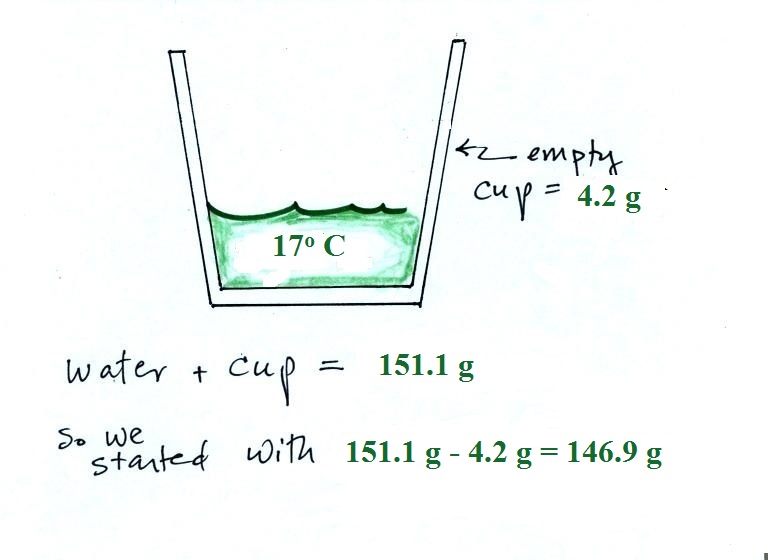 empty
cup = 4.2 g
17º C
water + cup = 151.1 g
So we
started with 151.1 g - 4.2 g = 146.9 g